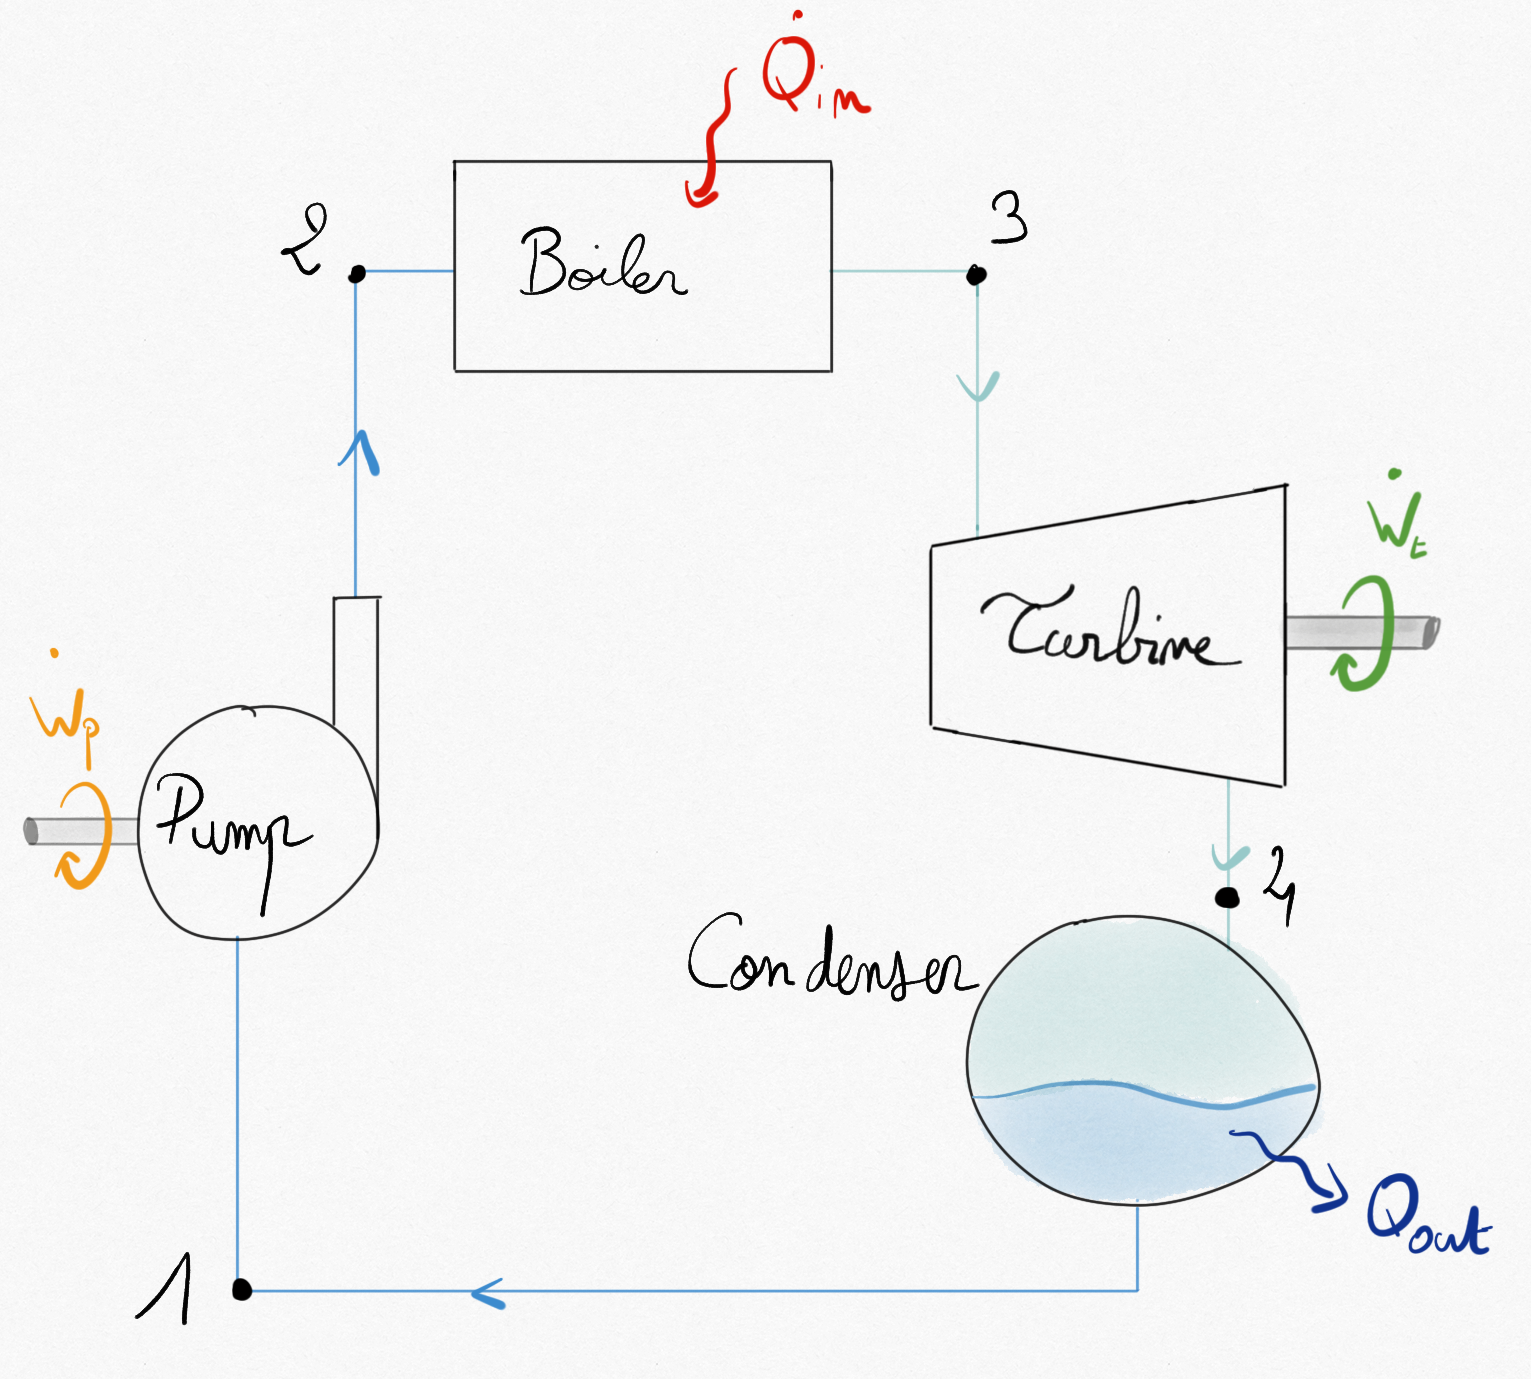 Q̇in
2
3
Boiler
Ẇt
Turbine
Ẇp
Pump
4
Condenser
Qout
1